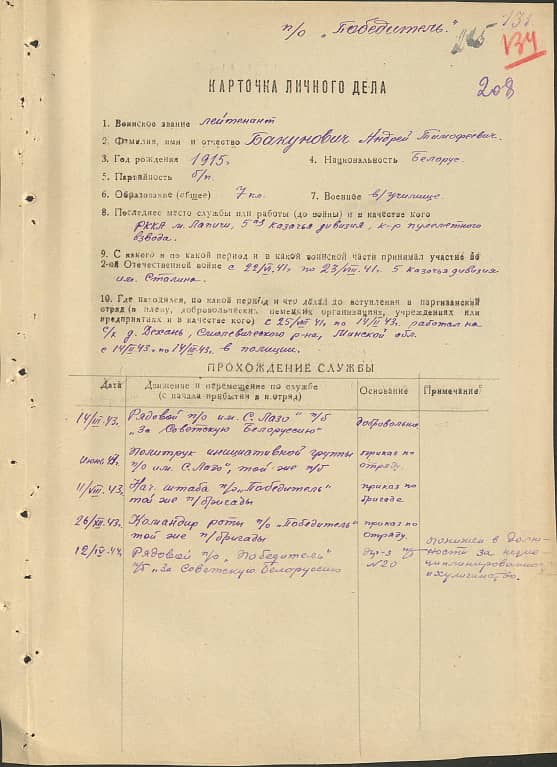 п/о „Победитель."
215 131.
134
КАРТОЧКА ЛИЧНОГО ДЕЛА
208
1. Воинское звание лейтенант
2. Фамилия, имя и отчество Бакунович Андрей Тимофеевич.
3. Год рождения 1915г. 4. Национальность Белорус.
5. Партийность б/п.
6. Образование (общее) 7 кл. 7. Военное в/училище.
8. Последнее место службы или работы (до войны) и в качестве кого
РККА м. Лапичи, 5ая казачья дивизия, к-р пулеметного
взвода.
9. С какого и по какой период и в какой воинской части принимал участие во
2-ой Отечественной войне с 22/VI-41г. по 23/VIII-41г. 5 казачья дивизия
им. Сталина.
10. Где находился, по какой период и что делал до вступления в партизанский
отряд (в плену, добровольческих немецких организациях, учреждениях или
предприятиях и в качестве кого) с 25/VIII 41г. по 14/II-43г. работал на
с/х д. Дехань, Смолевического р-на, Минской обл.
с 14/II-43г. по 14/III-43г. в полиции.
ПРОХОЖДЕНИЕ СЛУЖБЫ
Дата Движение и перемещение по службе Основание Примечание
(с начала прибытия в п/отряд)
14/III-43. Рядовой п/о им. С. Лазо п/б добровольно
„За Советскую Белоруссию"
Политрук инициативной группы приказ по
п/о им. С. Лазо", той же п/б отряду.
11/VIII-43. Нач. штаба п/о „Победитель" приказ по
той же п/бригады бригаде.
26/XII-43г. Командир роты п/о „Победитель" приказ по
той же п/бригады отряду.
12/IV-44. Рядовой п/о „Победитель" Пр-з п/б понижен в долж-
п/б „За Советскую Белоруссию N20 ности за
хулиганство.